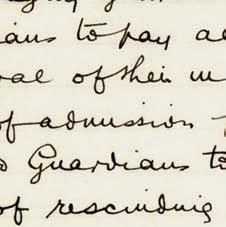 to pay
of their
of admission
Guardians to
of rescinding